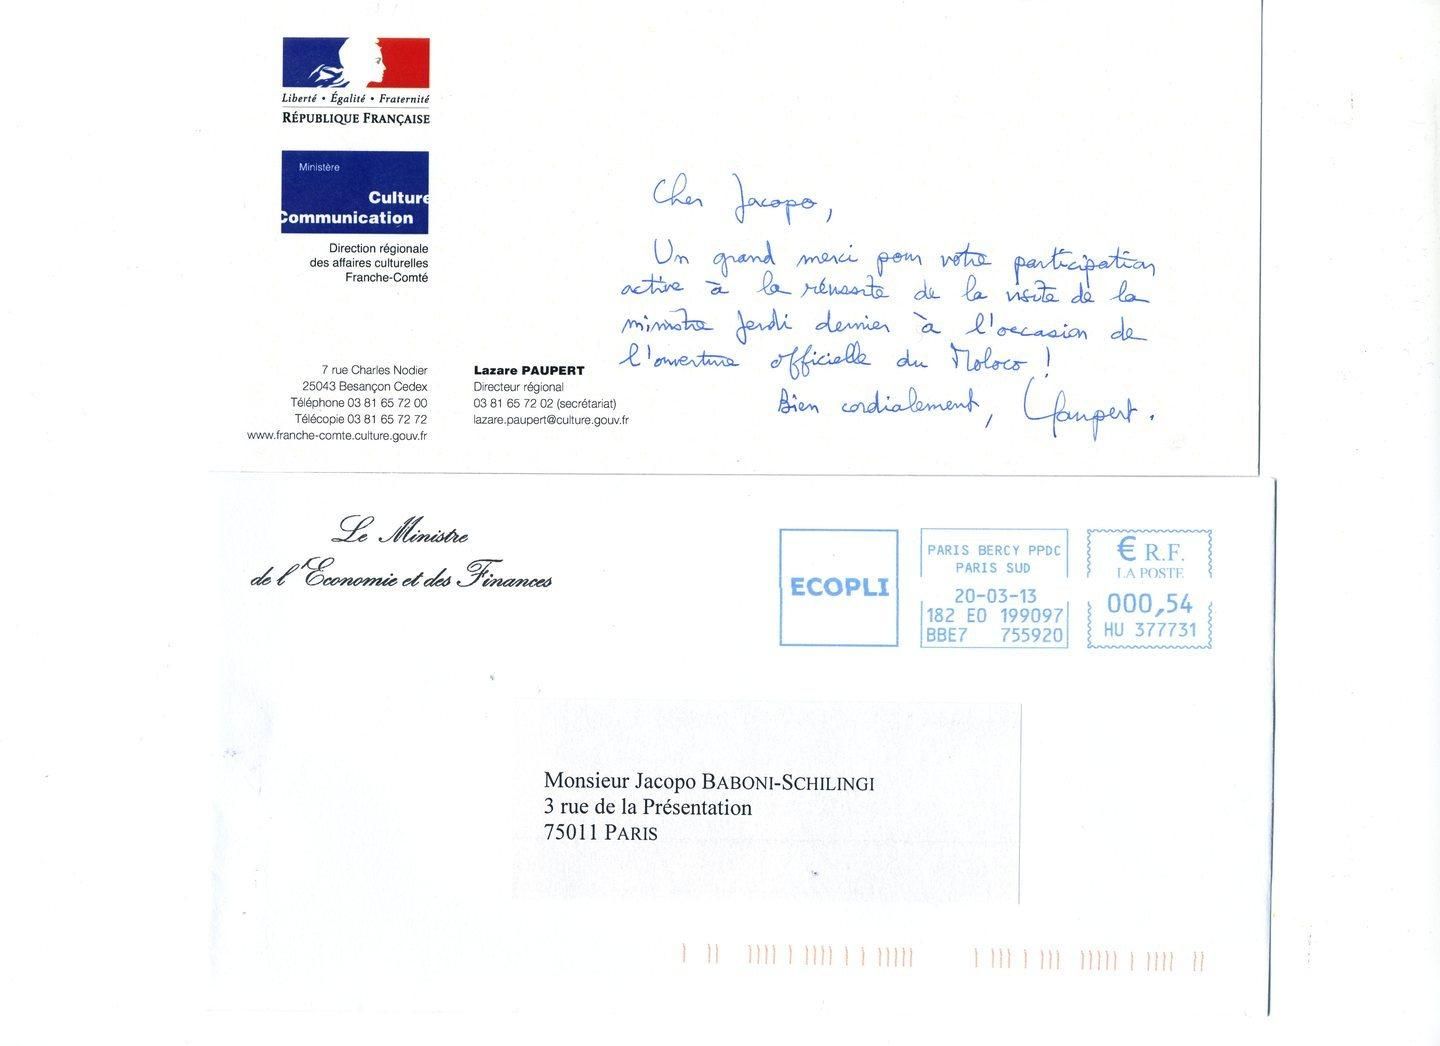 Liberté • Égalité • Fraternité
RÉPUBLIQUE FRANÇAISE
Ministère
Culture
Communication
Direction régionale
des affaires culturelles
Franche-Comté
7 rue Charles Nodier
25043 Besançon Cedex
Téléphone 03 81 65 72 00
Télécopie 03 81 65 72 72
www.franche-comte.culture.gouv.fr
Lazare PAUPERT
Directeur régional
03 81 65 72 02 (secrétariat)
lazare.paupert@culture.gouv.fr
Cher Jacopo,
Un grand merci pour votre participation
active à la réussite de la visite de la
ministre jeudi dernier à l'occasion de
l'ouverture officielle du Moloco !
Bien cordialement, LPaupert.
Le Ministre
de l'Economie et des Finances
ECOPLI
PARIS BERCY PPDC
PARIS SUD
20-03-13
182 E0 199097
BBE7 755920
€ R.F.
LA POSTE
000,54
HU 377731
Monsieur Jacopo BABONI-SCHILINGI
3 rue de la Présentation
75011 PARIS